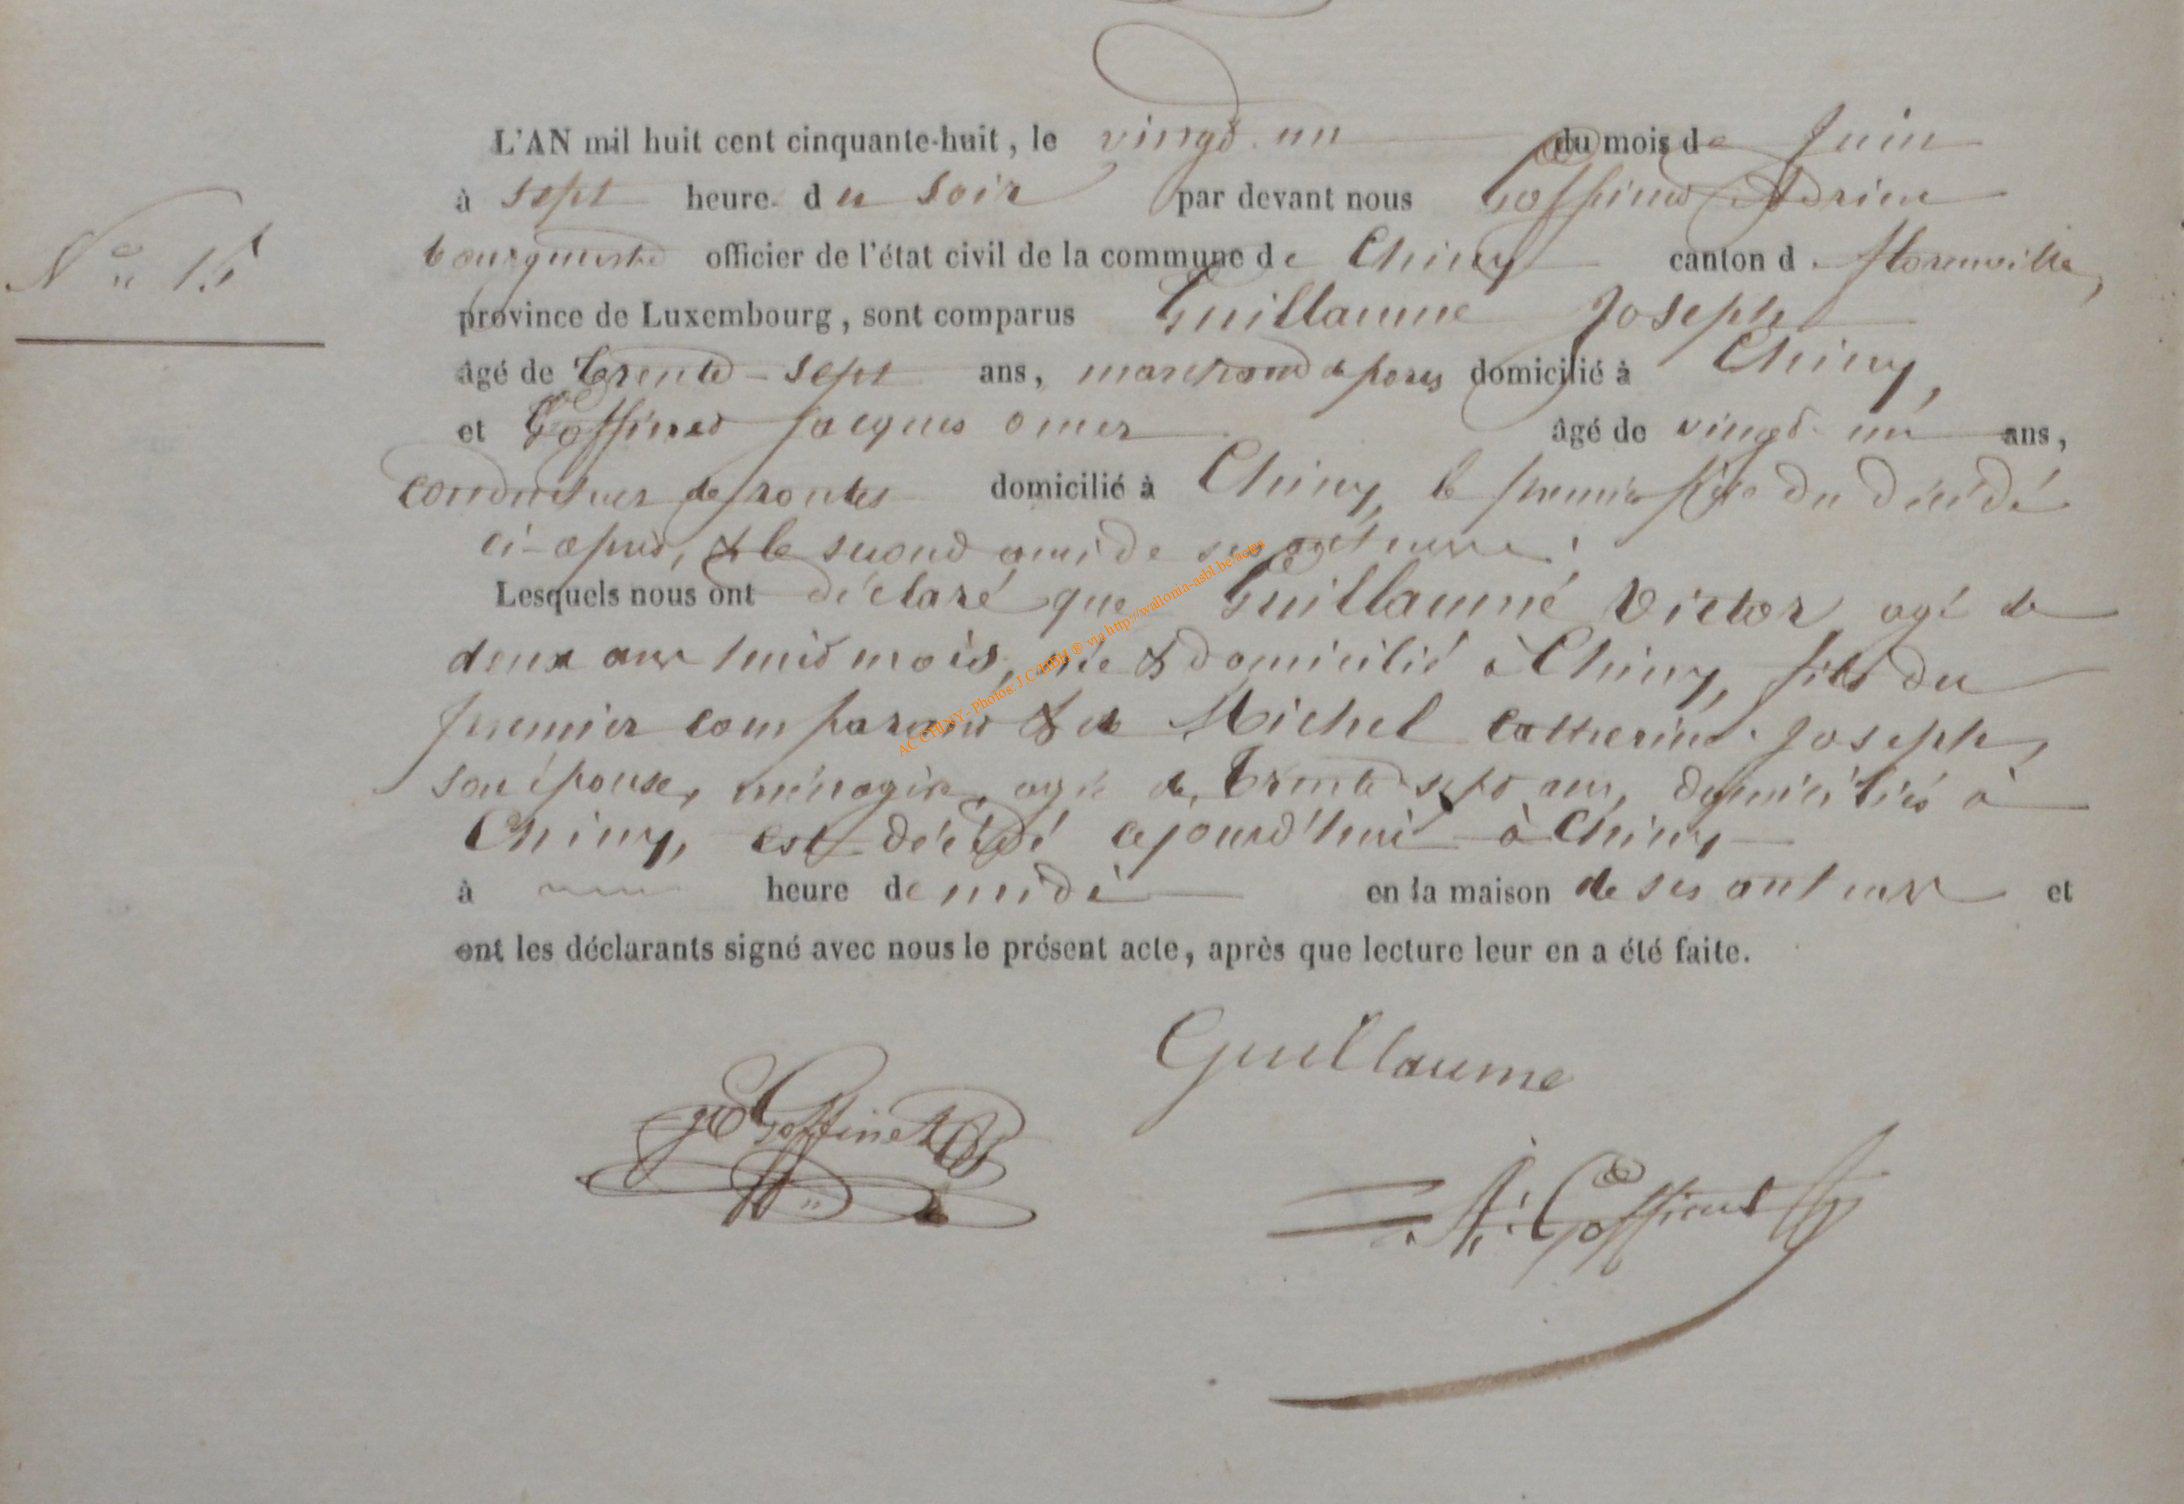 L'AN mil huit cent cinquante-huit, le vingt-un du mois de Juin
à sept heure du soir par devant nous Goffinet Adrien
bourgmestre officier de l'état civil de la commune de Chiny canton d. florenville,
N° 15
province de Luxembourg, sont comparus Guillaume Joseph
âgé de trente-sept ans, marchand de porcs domicilié à Chiny,
et Goffinet Jacques omer âgé de vingt-un ans,
conducteur de routes domicilié à Chiny, le premier père du décédé
ci-après, & le second ami de ses auteurs;
Lesquels nous ont déclaré que Guillaume Victor agé de
deux ans huit mois, née & domicilié à Chiny, fils du
premier comparant & de Michel Catherine Joseph,
son épouse, ménagère, agée de trente sept ans, domiciliés à
Chiny, est décédé cejourd'hui à Chiny
à heure de midi en la maison de ses auteurs et
ont les déclarants signé avec nous le présent acte, après que lecture leur en a été faite.
Guillaume
Goffinet
A. Goffinet
AC CHINY - Photos: J.C. ® via http://wallonia-asbl.be/actes